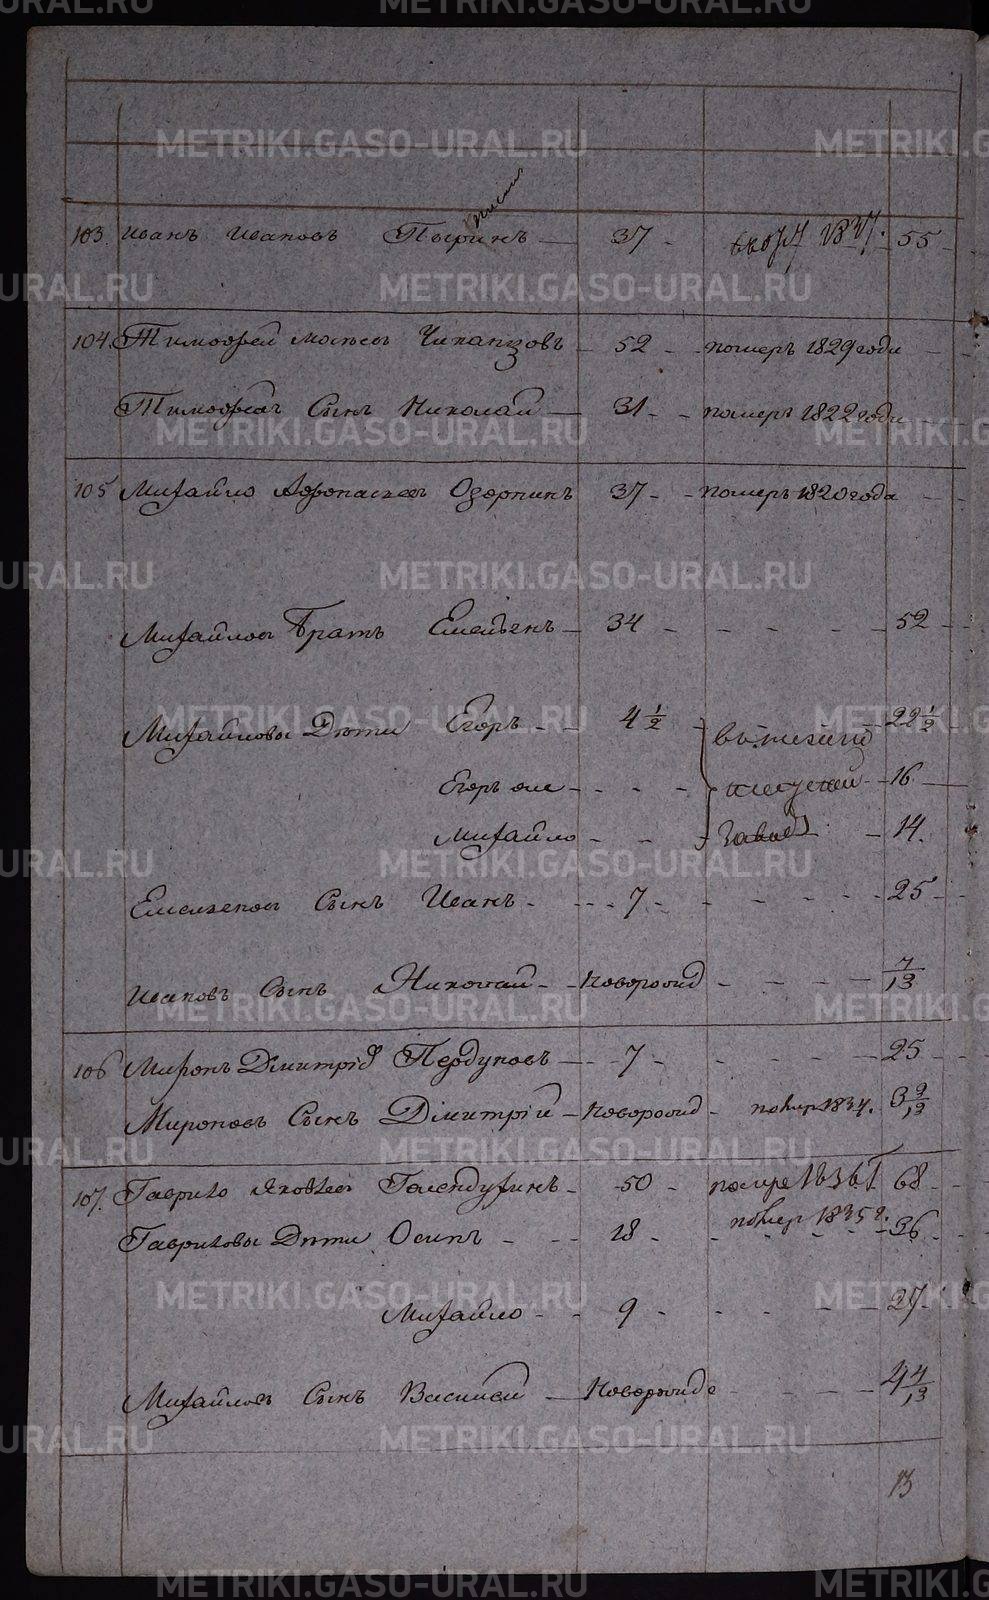 103. Иванъ Ивановъ Пыринъ — 37 - 1837. 55
104. Тимофей Чипанзовъ - 52 - - померъ 1829 года
Тимофеевъ Сынъ Николай — 31 - - померъ 1822 года
105 Михайло Афонасьевъ Озорнинъ 37 - - померъ 1820 года
Михайловъ Братъ Емельянъ — 34 - - - - - 52
Михайловы Дѣти Егоръ - - 4 1/2 22 1/2
Егоръ же - - - - 16
Михайло - - - заводъ - 14.
Емельяновъ Сынъ Иванъ - - - 7 - - - - - 25
Ивановъ Сынъ Николай - - Новорожд - - - - 7/13
106 Миронъ Дмитріев Пердуновъ — 7 - - - - - 25
Мироновъ Сынъ Дмитрій — Новорожд - помер 1834. 3 9/12
107. Гаврило Яковлевъ - 50 - 1836 68
Гавриловы Дѣти Осипъ - - 18 - помер 1835 г. 36
Михайло - - 9 - - - - 27
Михайловъ Сынъ Василей — Новорожде - - - 4 4/12
13
METRIKI.GASO-URAL.RU